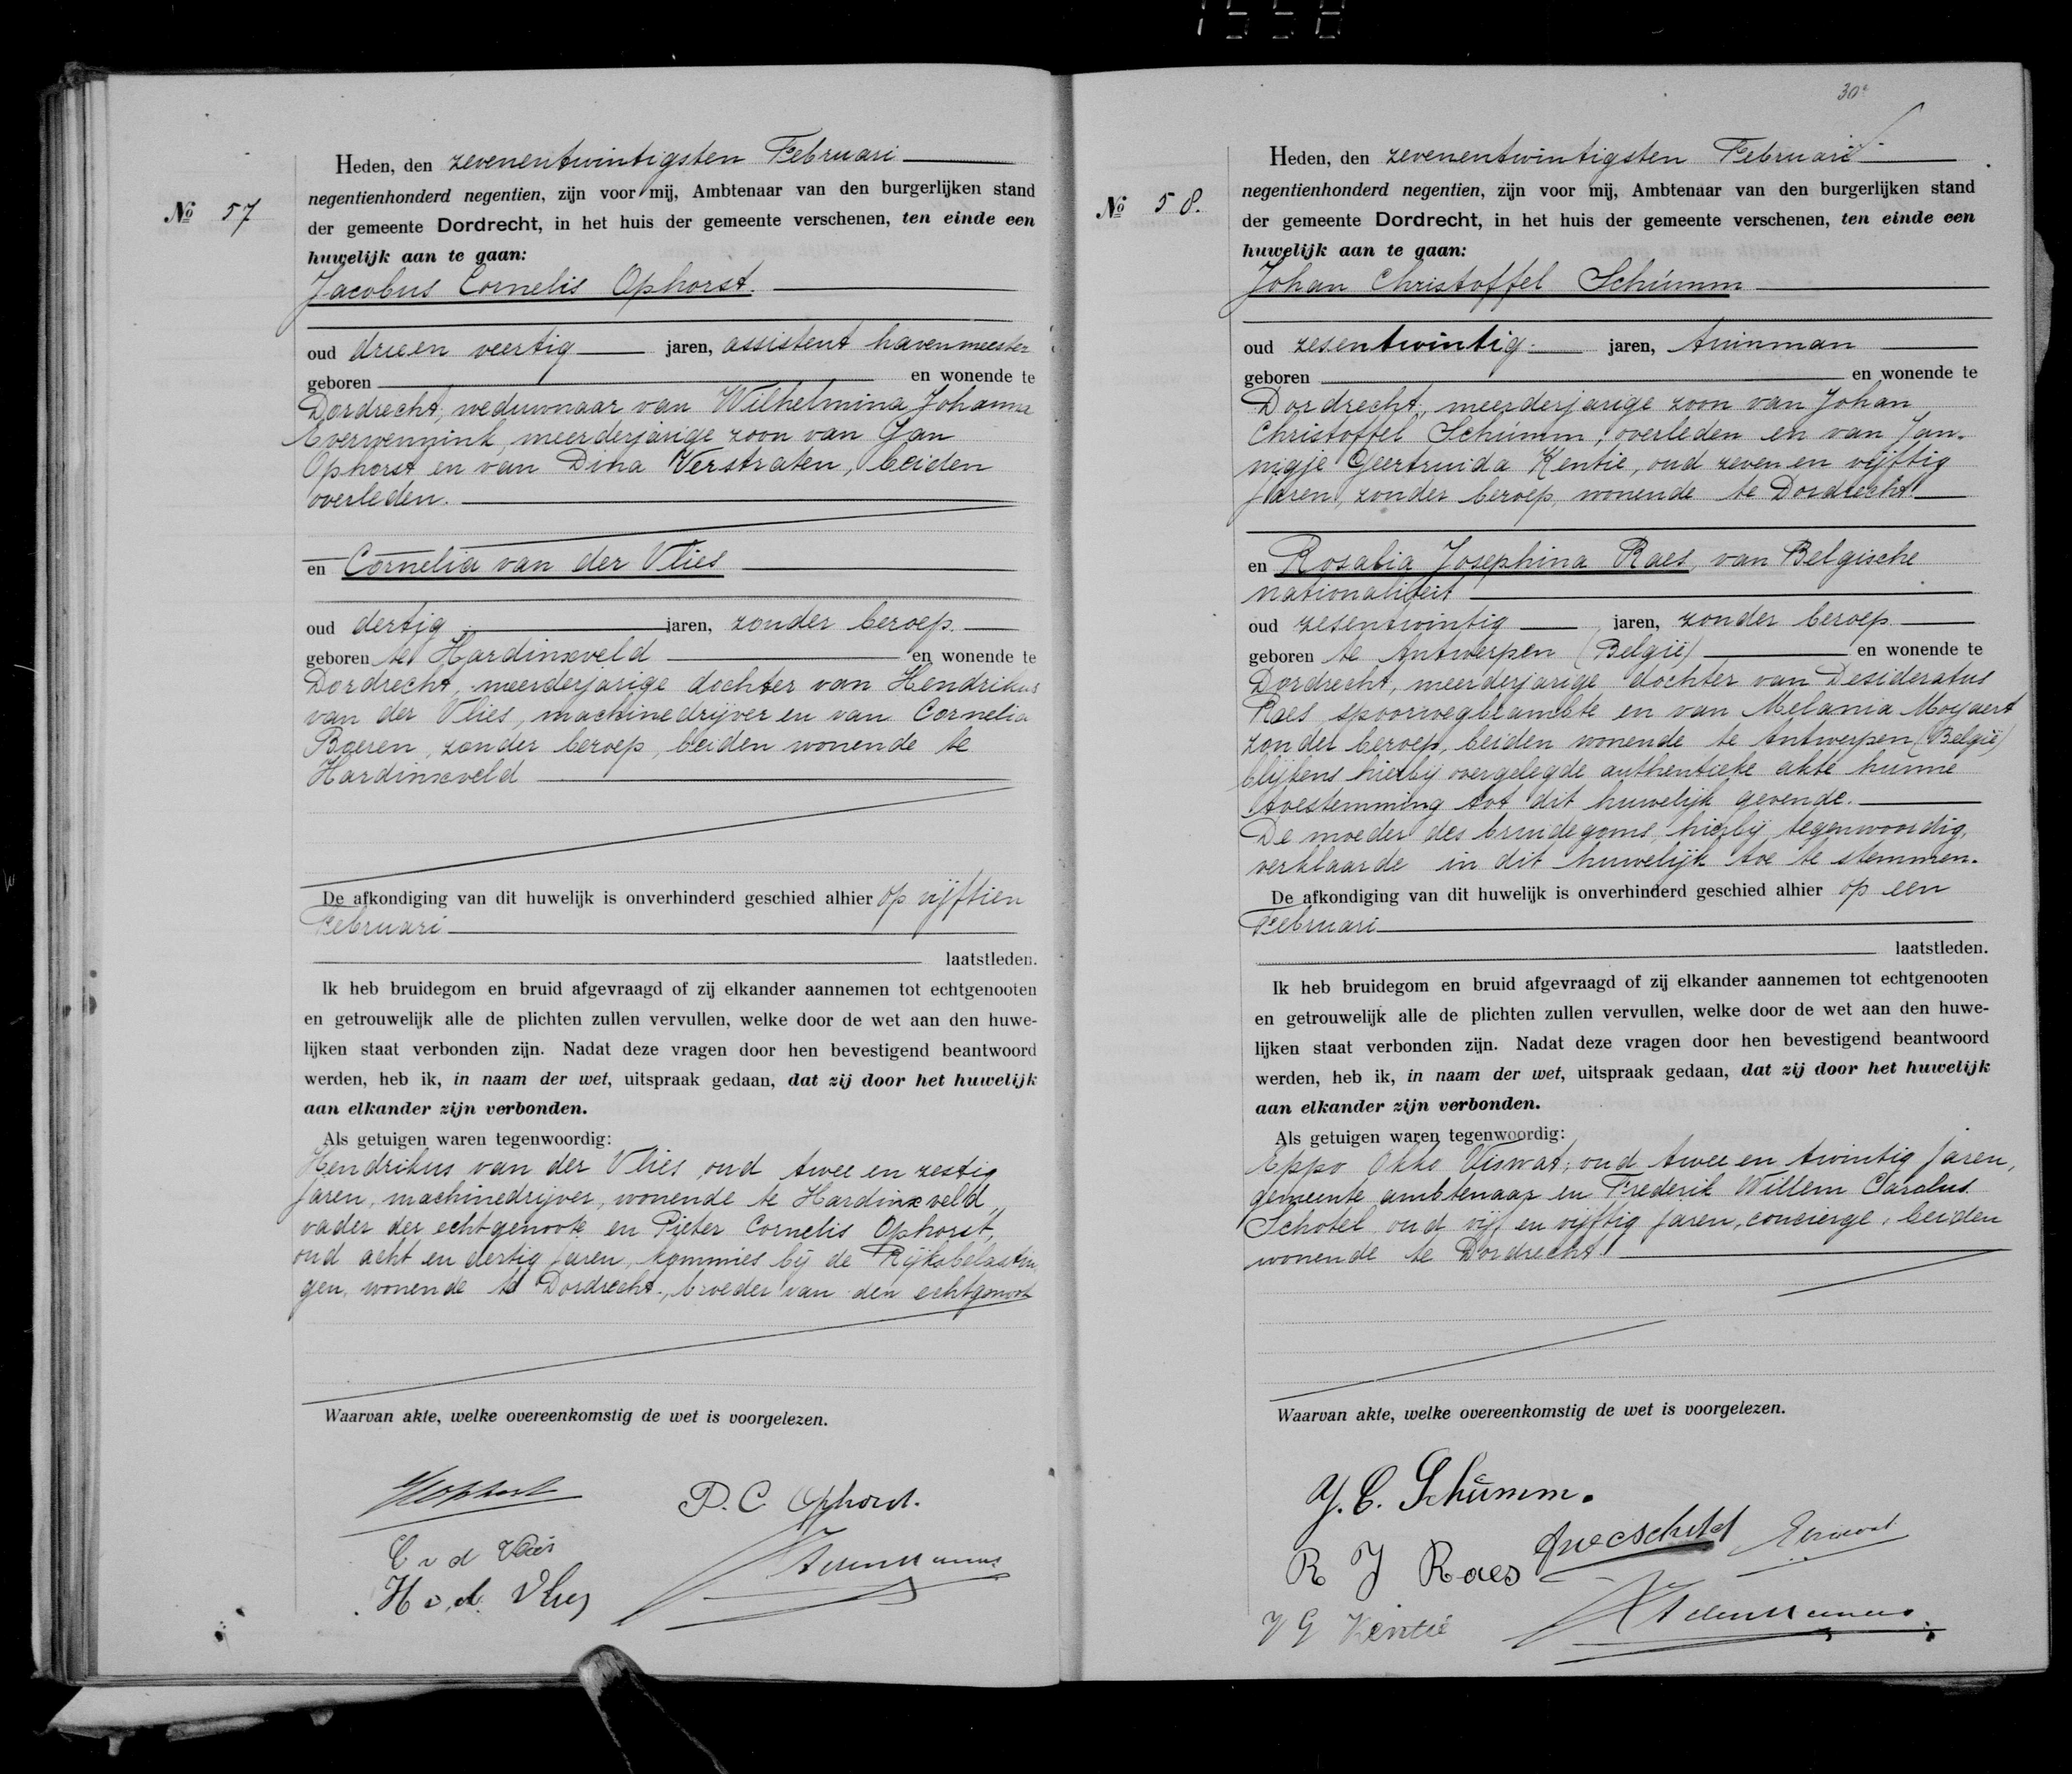 1558
Heden, den zevenentwintigsten Februari
negentienhonderd negentien, zijn voor mij, Ambtenaar van den burgerlijken stand
№ 57
der gemeente Dordrecht, in het huis der gemeente verschenen, ten einde een
huwelijk aan te gaan:
Jacobus Cornelis Ophorst.
oud drieen veertig jaren, assistent havenmeester
geboren en wonende te
Dordrecht, weduwnaar van Wilhelmina Johanna
Everwennink, meerderjarige zoon van Jan
Ophorst en van Dina Verstraten, beiden
overleden.
en Cornelia van der Vlies
oud dertig jaren, zonder beroep.
geboren te Hardinxveld en wonende te
Dordrecht, meerderjarige dochter van Hendrikus
van der Vlies, machinedrijver en van Cornelia
Boeren, zonder beroep, beiden wonende te
Hardinxveld
De afkondiging van dit huwelijk is onverhinderd geschied alhier op vijftien
Februari
laatstleden.
Ik heb bruidegom en bruid afgevraagd of zij elkander aannemen tot echtgenooten
en getrouwelijk alle de plichten zullen vervullen, welke door de wet aan den huwe-
lijken staat verbonden zijn. Nadat deze vragen door hen bevestigend beantwoord
werden, heb ik, in naam der wet, uitspraak gedaan, dat zij door het huwelijk
aan elkander zijn verbonden.
Als getuigen waren tegenwoordig:
Hendrikus van der Vlies, oud twee en zestig
jaren, machinedrijver, wonende te Hardinxveld,
vader der echtgenoote en Pieter Cornelis Ophorst,
oud acht en dertig jaren, kommies bij de Rijksbelastin
gen, wonende te Dordrecht, broeder van den echtgenoot
Waarvan akte, welke overeenkomstig de wet is voorgelezen.
P. C. Ophorst.
C v d Vlies
H v. d. Vlies
30
Heden, den zevenentwintigsten Februari
negentienhonderd negentien, zijn voor mij, Ambtenaar van den burgerlijken stand
№ 58.
der gemeente Dordrecht, in het huis der gemeente verschenen, ten einde een
huwelijk aan te gaan:
Johan Christoffel Schümm
oud zesentwintig jaren, tuinman
geboren en wonende te
Dordrecht, meerderjarige zoon van Johan
Christoffel Schümm, overleden en van Jan-
nigje Geertruida Kentie, oud zeven en vijftig
jaren, zonder beroep, wonende te Dordrecht.
en Rosalia Josephina Raes, van Belgische
nationaliteit
oud zesentwintig jaren, zonder beroep
geboren te Antwerpen (België) en wonende te
Dordrecht, meerderjarige dochter van Desideratus
Raes, spoorwegbeambte en van Melania Moyaert
zonder beroep, beiden wonende te Antwerpen (België)
blijkens hierbij overgelegde authentieke akte hunne
toestemming tot dit huwelijk gevende.
De moeder des bruidegoms, hierbij tegenwoordig,
verklaarde in dit huwelijk toe te stemmen.
De afkondiging van dit huwelijk is onverhinderd geschied alhier op een
Februari
laatstleden.
Ik heb bruidegom en bruid afgevraagd of zij elkander aannemen tot echtgenooten
en getrouwelijk alle de plichten zullen vervullen, welke door de wet aan den huwe-
lijken staat verbonden zijn. Nadat deze vragen door hen bevestigend beantwoord
werden, heb ik, in naam der wet, uitspraak gedaan, dat zij door het huwelijk
aan elkander zijn verbonden.
Als getuigen waren tegenwoordig:
Eppo Okko Viswat, oud twee en twintig jaren,
gemeente ambtenaar en Frederik Willem Carolus
Schotel, oud vijf en vijftig jaren, concierge, beiden
wonende te Dordrecht.
Waarvan akte, welke overeenkomstig de wet is voorgelezen.
J. C. Schümm.
R J Raes
J G Kentie